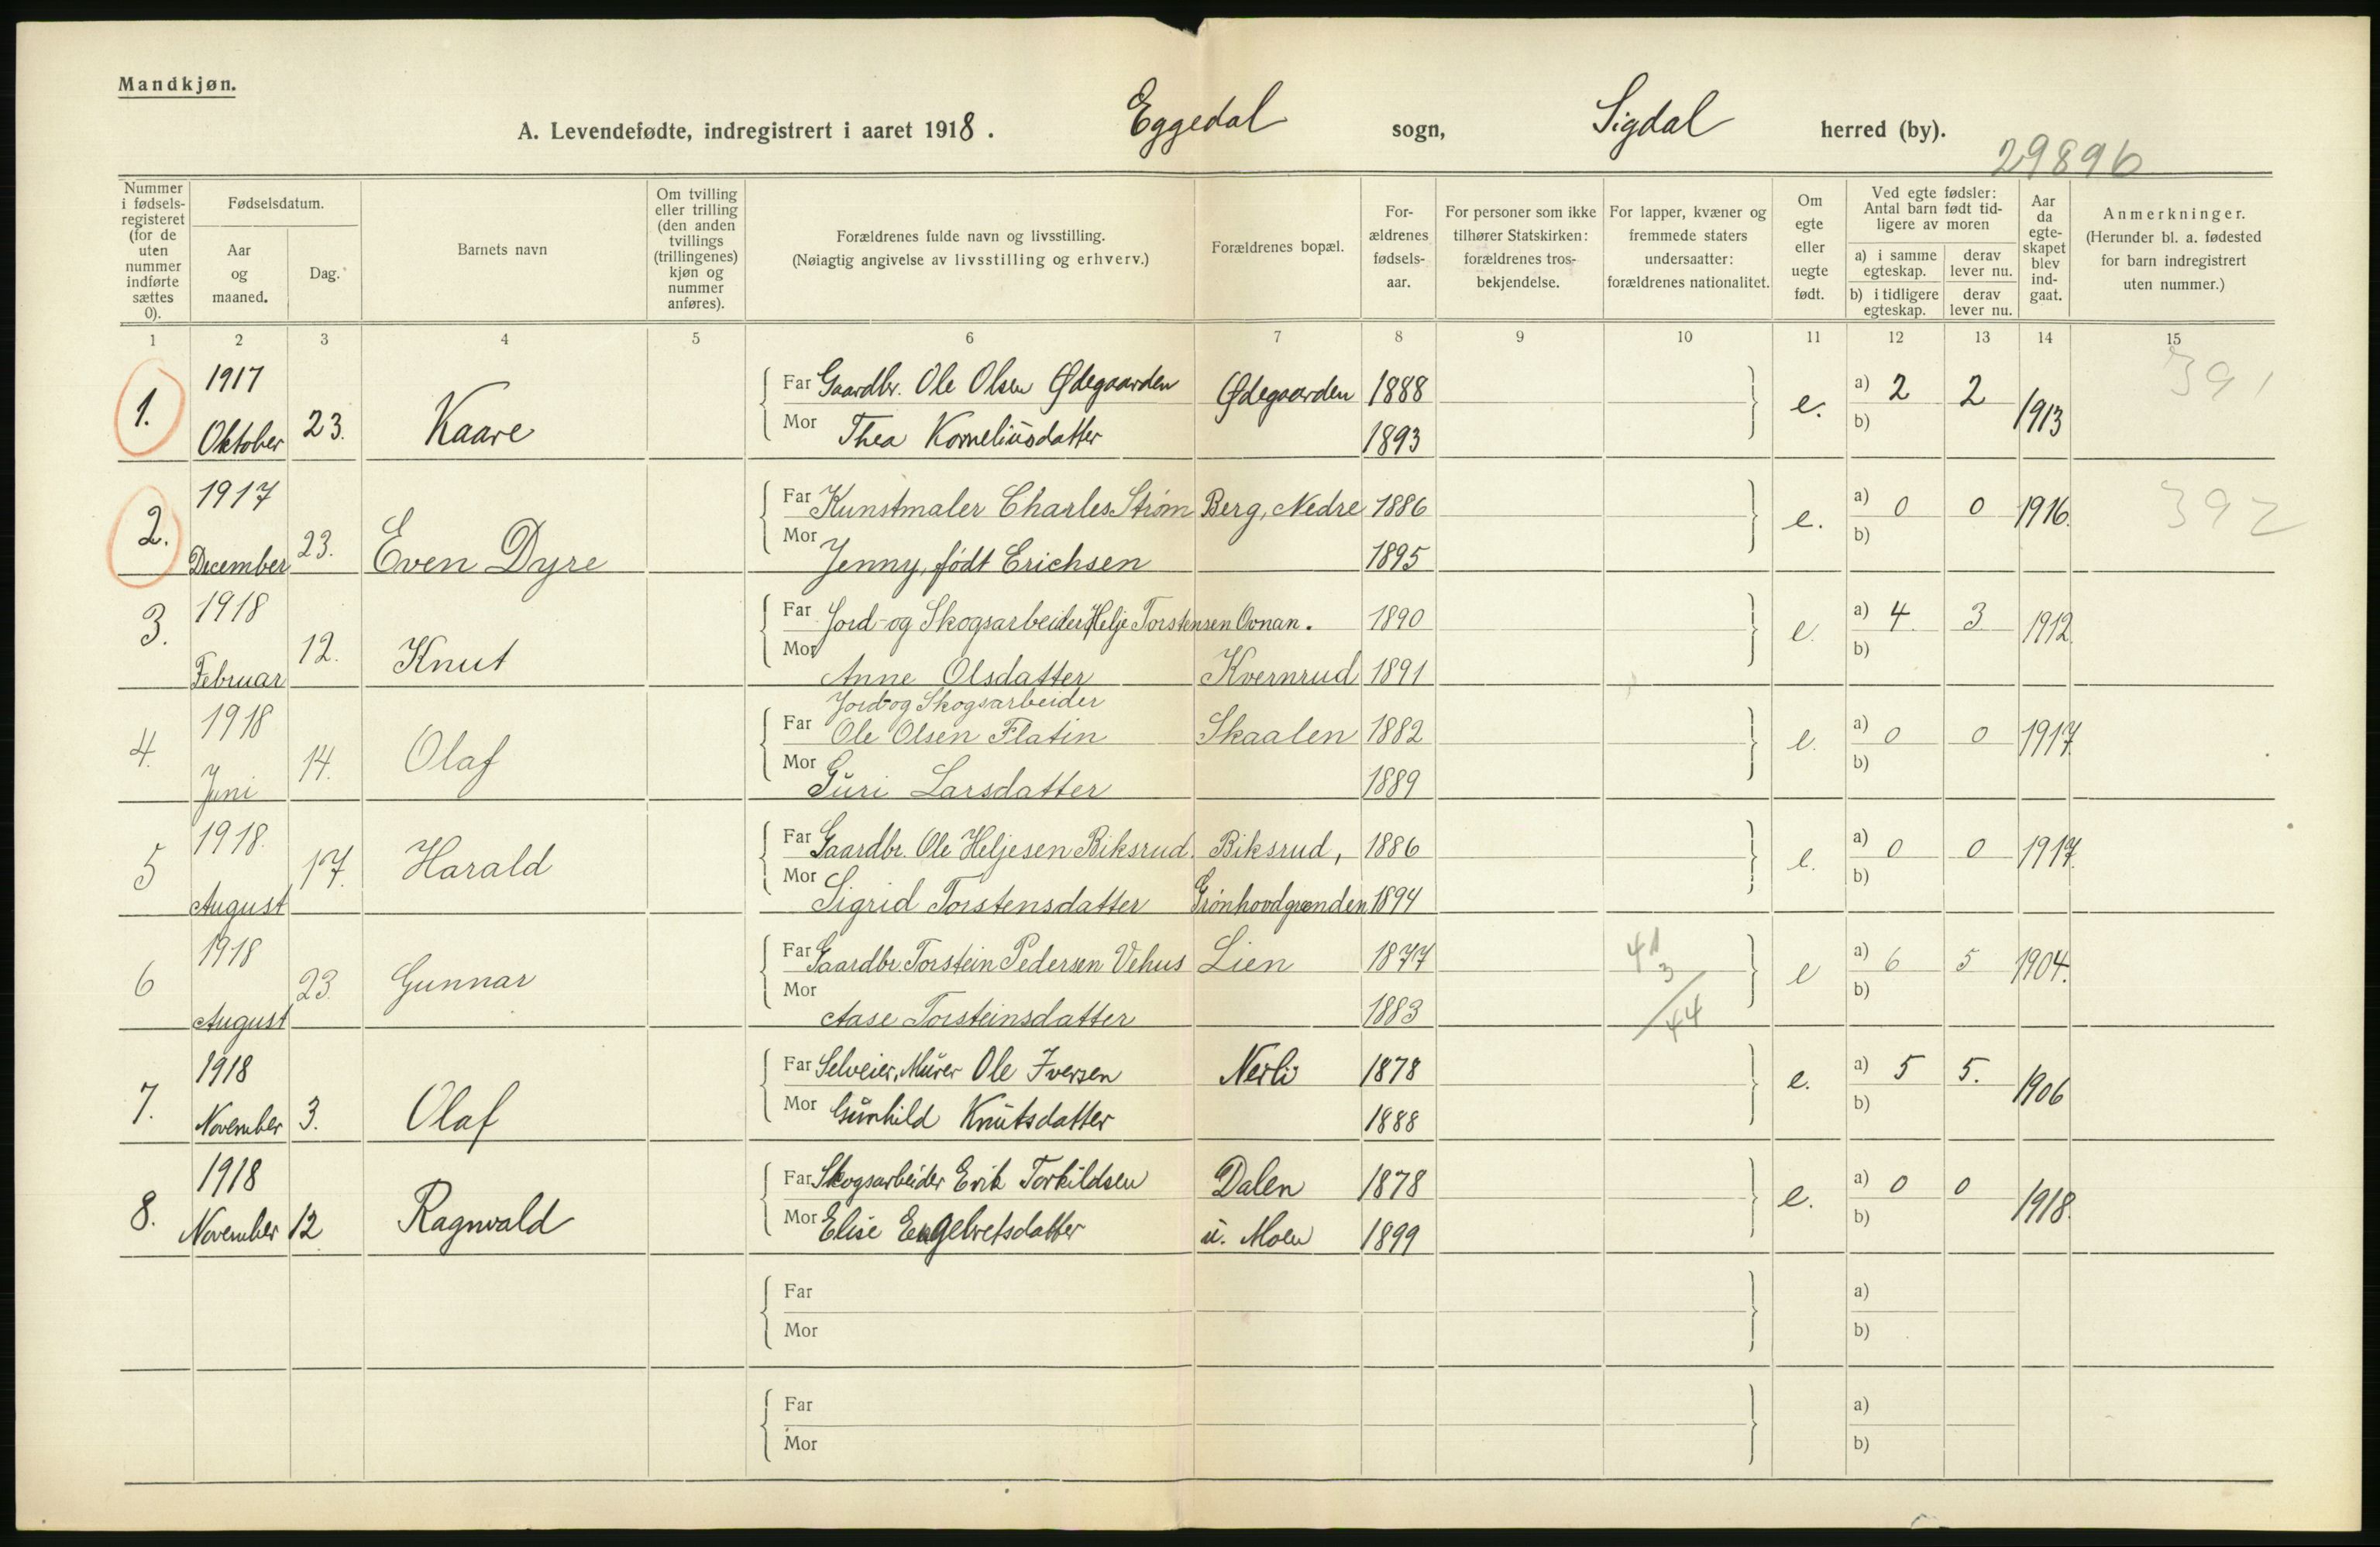 Mandkjøn.
A. Levendefødte, indregistrert i aaret 1918. Eggedal sogn, Sigdal herred (by).
29896
Nummer i fødsels-registeret (for de uten nummer indførte sættes 0).
Fødselsdatum.
Aar og maaned.
Dag.
Barnets navn
Om tvilling eller trilling (den anden tvillings (trillingenes) kjøn og nummer anføres).
Forældrenes fulde navn og livsstilling.
(Nøiagtig angivelse av livsstilling og erhverv.)
Forældrenes bopæl.
For-ældrenes fødsels-aar.
For personer som ikke tilhører Statskirken: forældrenes tros-bekjendelse.
For lapper, kvæner og fremmede staters undersaatter: forældrenes nationalitet.
Om egte eller uegte født.
Ved egte fødsler: Antal barn født tid-ligere av moren
a) i samme egteskap. derav lever nu.
b) i tidligere egteskap. derav lever nu.
Aar da egte-skapet blev ind-gaat.
Anmerkninger.
(Herunder bl. a. fødested for barn indregistrert uten nummer.)
1 2 3 4 5 6 7 8 9 10 11 12 13 14 15
1. 1917 Oktober 23. Kaare
Far Gaardbr. Ole Olsen Ødegaarden Ødegaarden 1888 e. a) 2 2 1913 391
Mor Thea Korneliusdatter 1893 b)
2. 1917 December 23. Even Dyre
Far Kunstmaler Charles Strøm Berg, Nedre 1886 e. a) 0 0 1916. 392
Mor Jenny, født Erichsen 1895 b)
3. 1918 Februar 12. Knut
Far Jord- og Skogsarbeider Helje Torstensen Ovnan. 1890 e. a) 4 3 1912
Mor Anne Olsdatter Kvernrud 1891 b)
4. 1918 Juni 14. Olaf
Jord- og Skogsarbeider
Far Ole Olsen Flatin Skaalen 1882 e. a) 0 0 1917
Mor Guri Larsdatter 1889 b)
5 1918. August 17. Harald
Far Gaardbr. Ole Heljesen Biksrud. Biksrud, 1886 e. a) 0 0 1917.
Mor Sigrid Torstensdatter Grønhovdgrænden 1894 b)
6 1918 August 23. Gunnar
Far Gaardbr. Torstein Pedersen Vehus Lien 1877 e a) 6 5 1904.
Mor Aase Torsteinsdatter 1883 b)
7. 1918 November 3. Olaf
Far Selveier, Murer Ole Iversen Nerli 1878 e. a) 5 5. 1906
Mor Gunhild Knutsdatter 1888 b)
8. 1918 November 12 Ragnvald
Far Skogsarbeider Erik Torkildsen Dalen 1878 e. a) 0 0 1918.
Mor Elise Engebretsdatter u. Moen 1899 b)
Far a)
Mor b)
Far a)
Mor b)